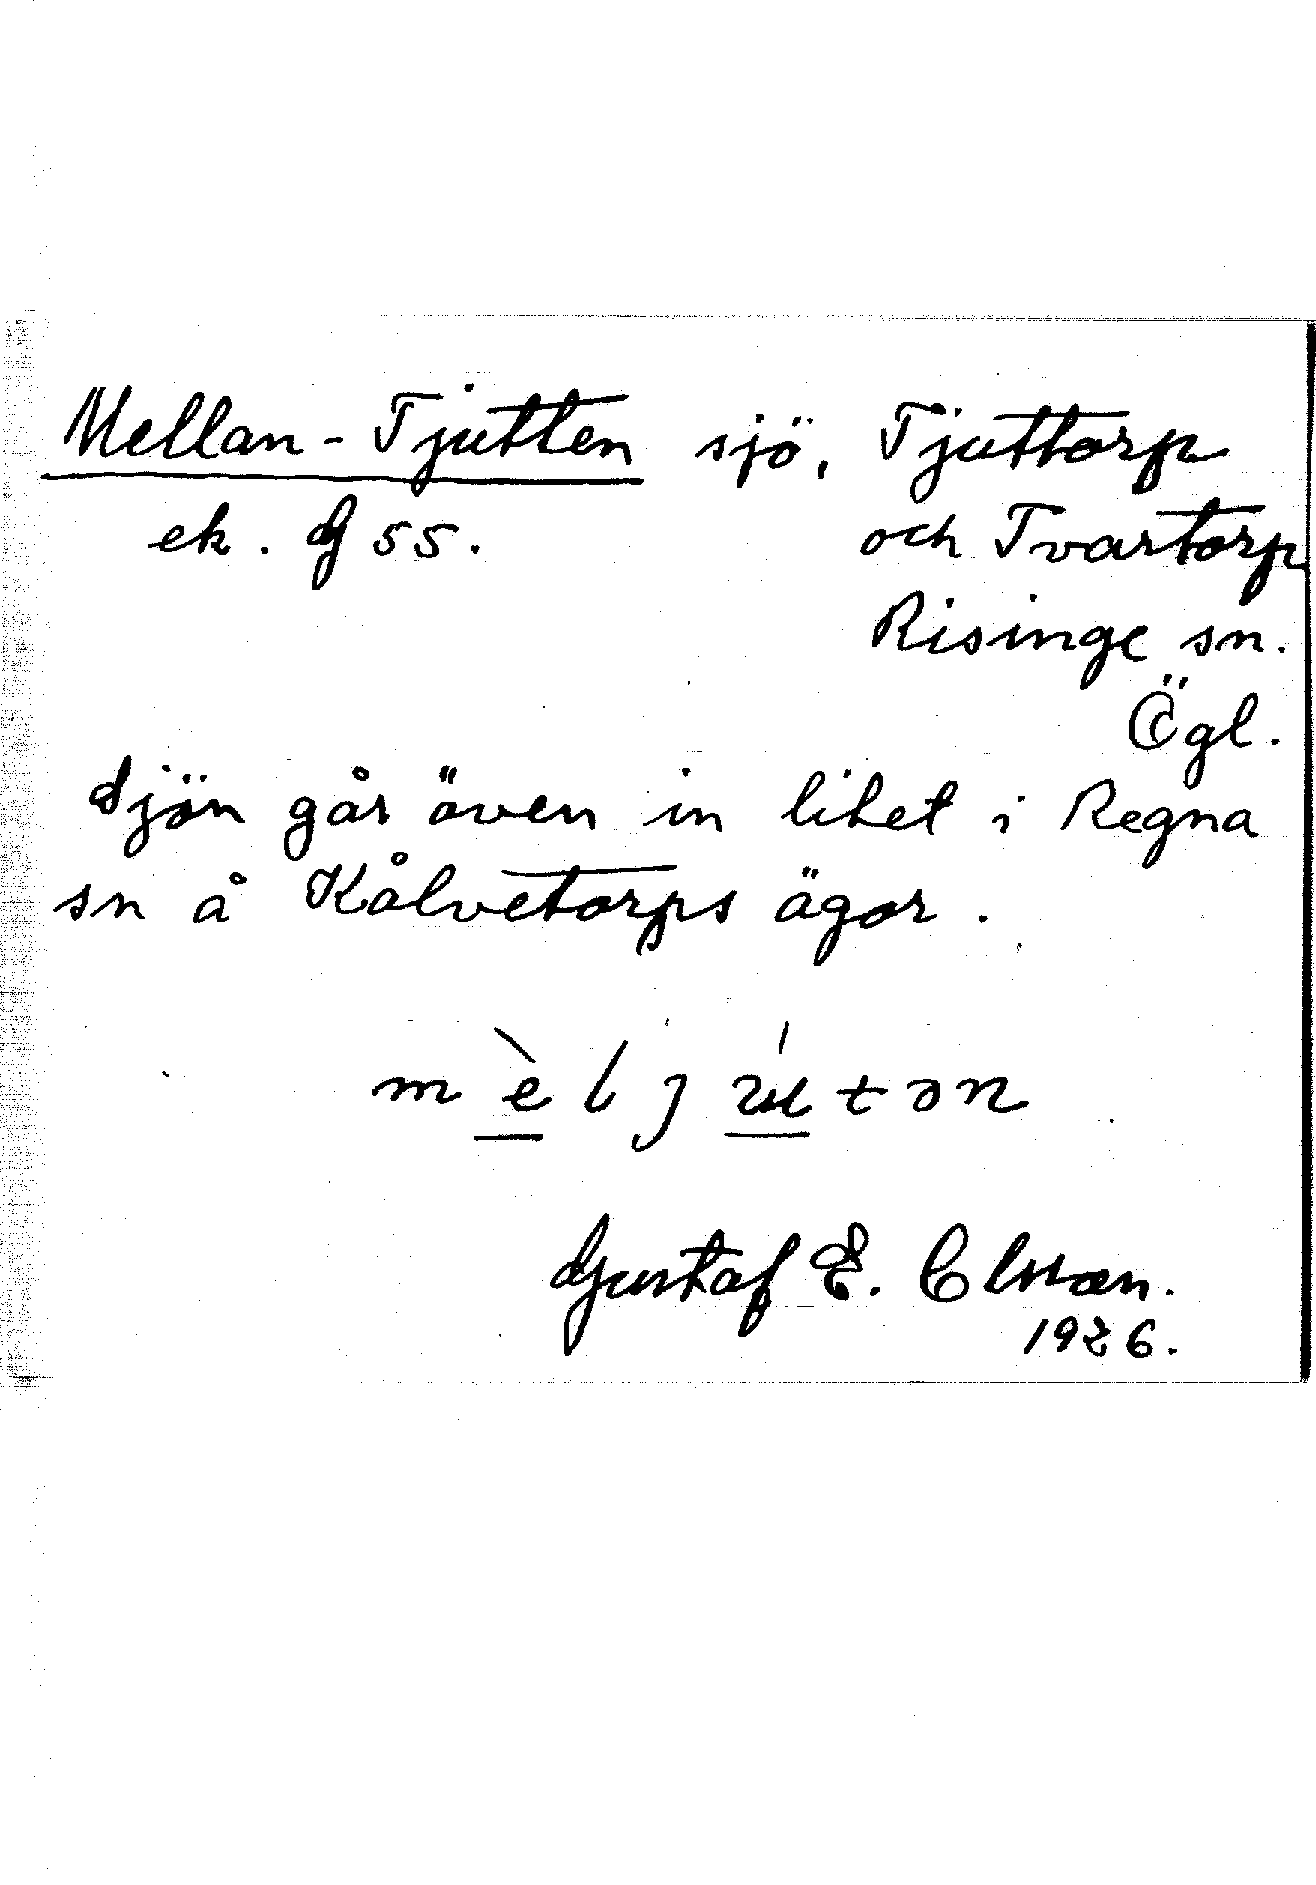 Mellan-Tjutten sjö, Tjuttorp
ek. G 55. och Tvartorp
Risinge sn.
Ögl.
Sjön går även in litet i Regna
sn å Kålvetorps ägor.
Gustaf E. Clason.
1926.